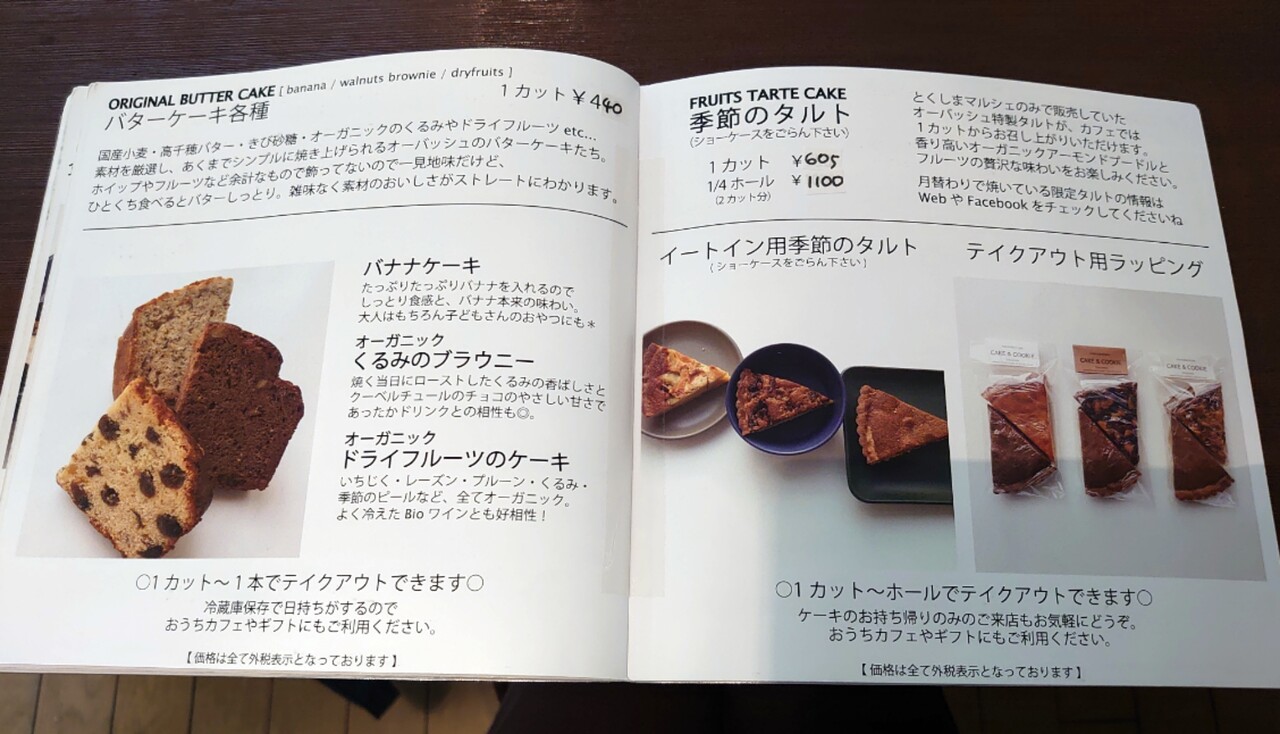 ORIGINAL BUTTER CAKE [ banana / walnuts brownie / dryfruits ]
バターケーキ各種
1カット ¥440
国産小麦・高千穂バター・きび砂糖・オーガニックのくるみやドライフルーツ etc...
素材を厳選し、あくまでシンプルに焼き上げられるオーバッシュのバターケーキたち。
ホイップやフルーツなど余計なもので飾ってないので一見地味だけど、
ひとくち食べるとバターしっとり。雑味なく素材のおいしさがストレートにわかります。
バナナケーキ
たっぷりたっぷりバナナを入れるので
しっとり食感と、バナナ本来の味わい。
大人はもちろん子どもさんのおやつにも＊
オーガニック
くるみのブラウニー
焼く当日にローストしたくるみの香ばしさと
クーベルチュールのチョコのやさしい甘さで
あったかドリンクとの相性も◎。
オーガニック
ドライフルーツのケーキ
いちじく・レーズン・プルーン・くるみ・
季節のピールなど、全てオーガニック。
よく冷えた Bio ワインとも好相性！
○1カット〜1本でテイクアウトできます○
冷蔵庫保存で日持ちがするので
おうちカフェやギフトにもご利用ください。
【価格は全て外税表示となっております】
FRUITS TARTE CAKE
季節のタルト
(ショーケースをごらん下さい)
1カット ¥605
1/4ホール ¥1100
(2カット分)
とくしまマルシェのみで販売していた
オーバッシュ特製タルトが、カフェでは
1カットからお召し上がりいただけます。
香り高いオーガニックアーモンドプードルと
フルーツの贅沢な味わいをお楽しみください。
月替わりで焼いている限定タルトの情報は
Web や Facebook をチェックしてくださいね
イートイン用季節のタルト
(ショーケースをごらん下さい)
テイクアウト用ラッピング
CAKE & COOKIE
CAKE & COOKIE
CAKE & COOKIE
○1カット〜ホールでテイクアウトできます○
ケーキのお持ち帰りのみのご来店もお気軽にどうぞ。
おうちカフェやギフトにもご利用ください。
【価格は全て外税表示となっております】